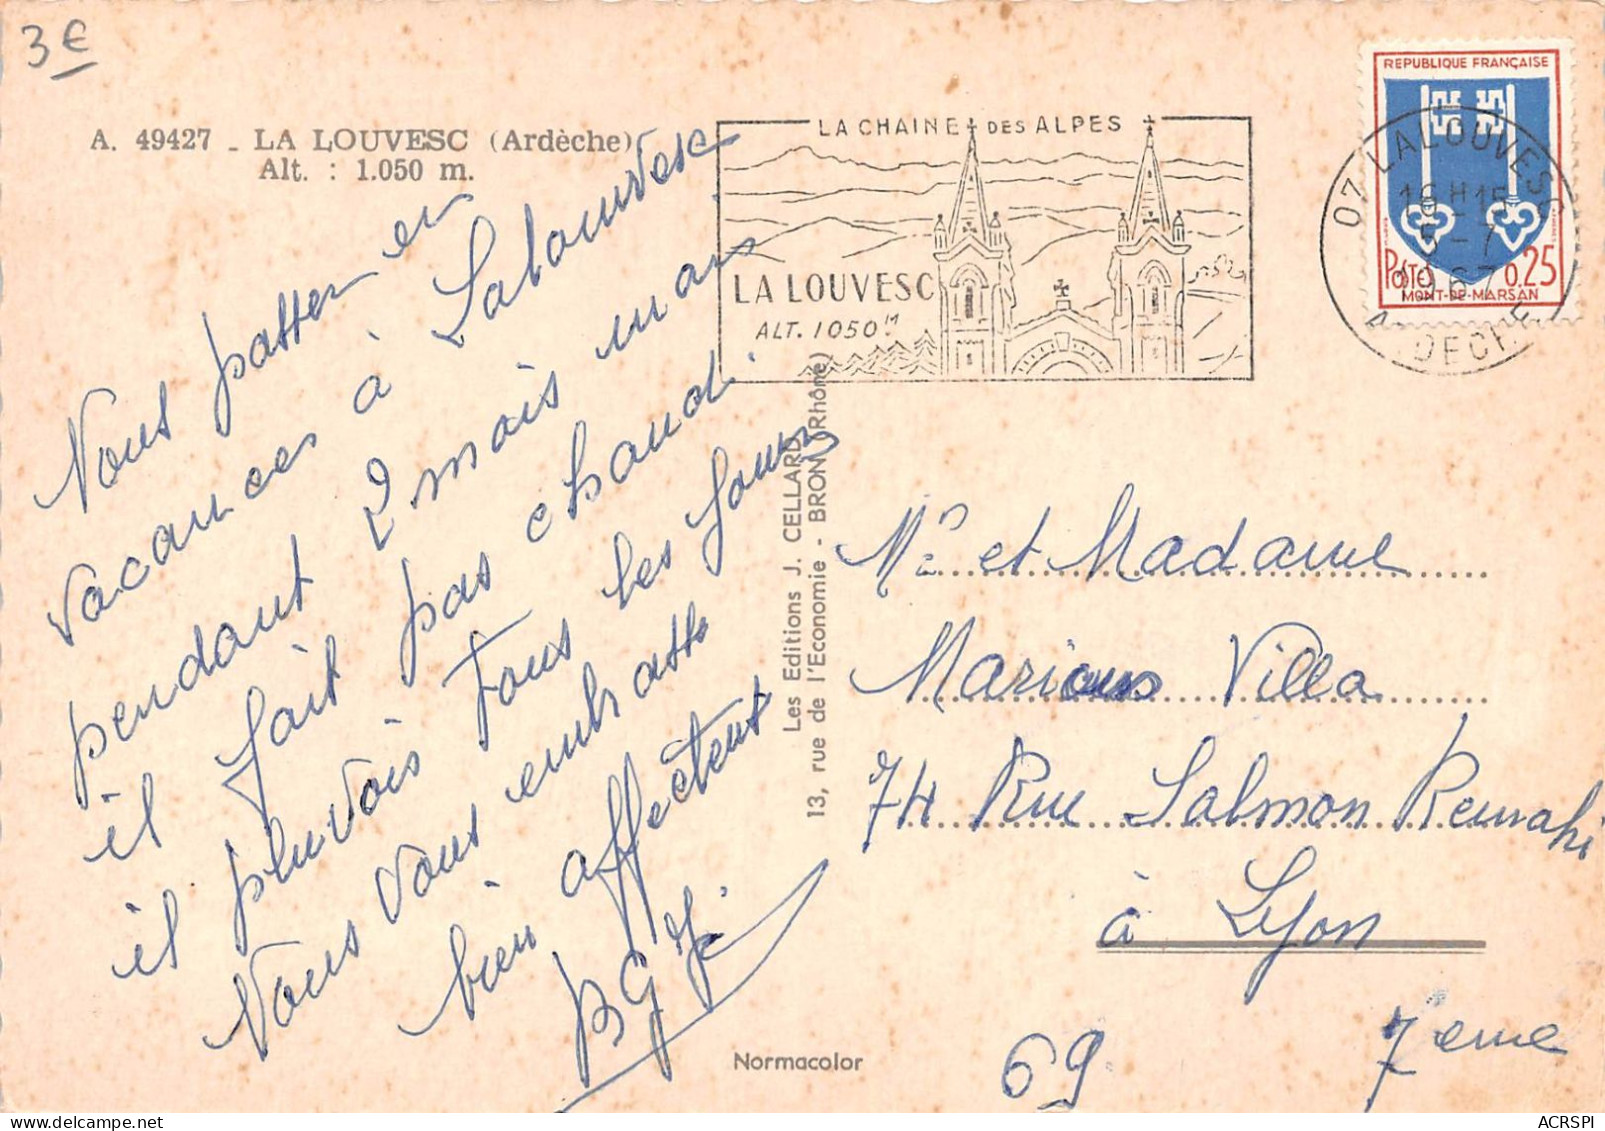 3 €
A. 49427 - LA LOUVESC (Ardèche)
Alt. : 1.050 m.
LA CHAINE DES ALPES
LA LOUVESC
ALT. 1050 M
REPUBLIQUE FRANÇAISE
POSTES 0,25
MONT-DE-MARSAN
07 LALOUVESC
16 H 15
5-7
1967
ARDECHE
Nous passon en
vacances à Lalouvesc
pendant 2 mois mais
il fait pas chaud.
il pluvois tous les jours
Nous vous embrasse
bien affecteus
Les Editions J. CELLARD
13, rue de l'Economie - BRON (Rhône)
Normacolor
Mr et Madame
Marious Villa
74 Rue Salmon Remahi
à Lyon
69 7eme
ACRSPI